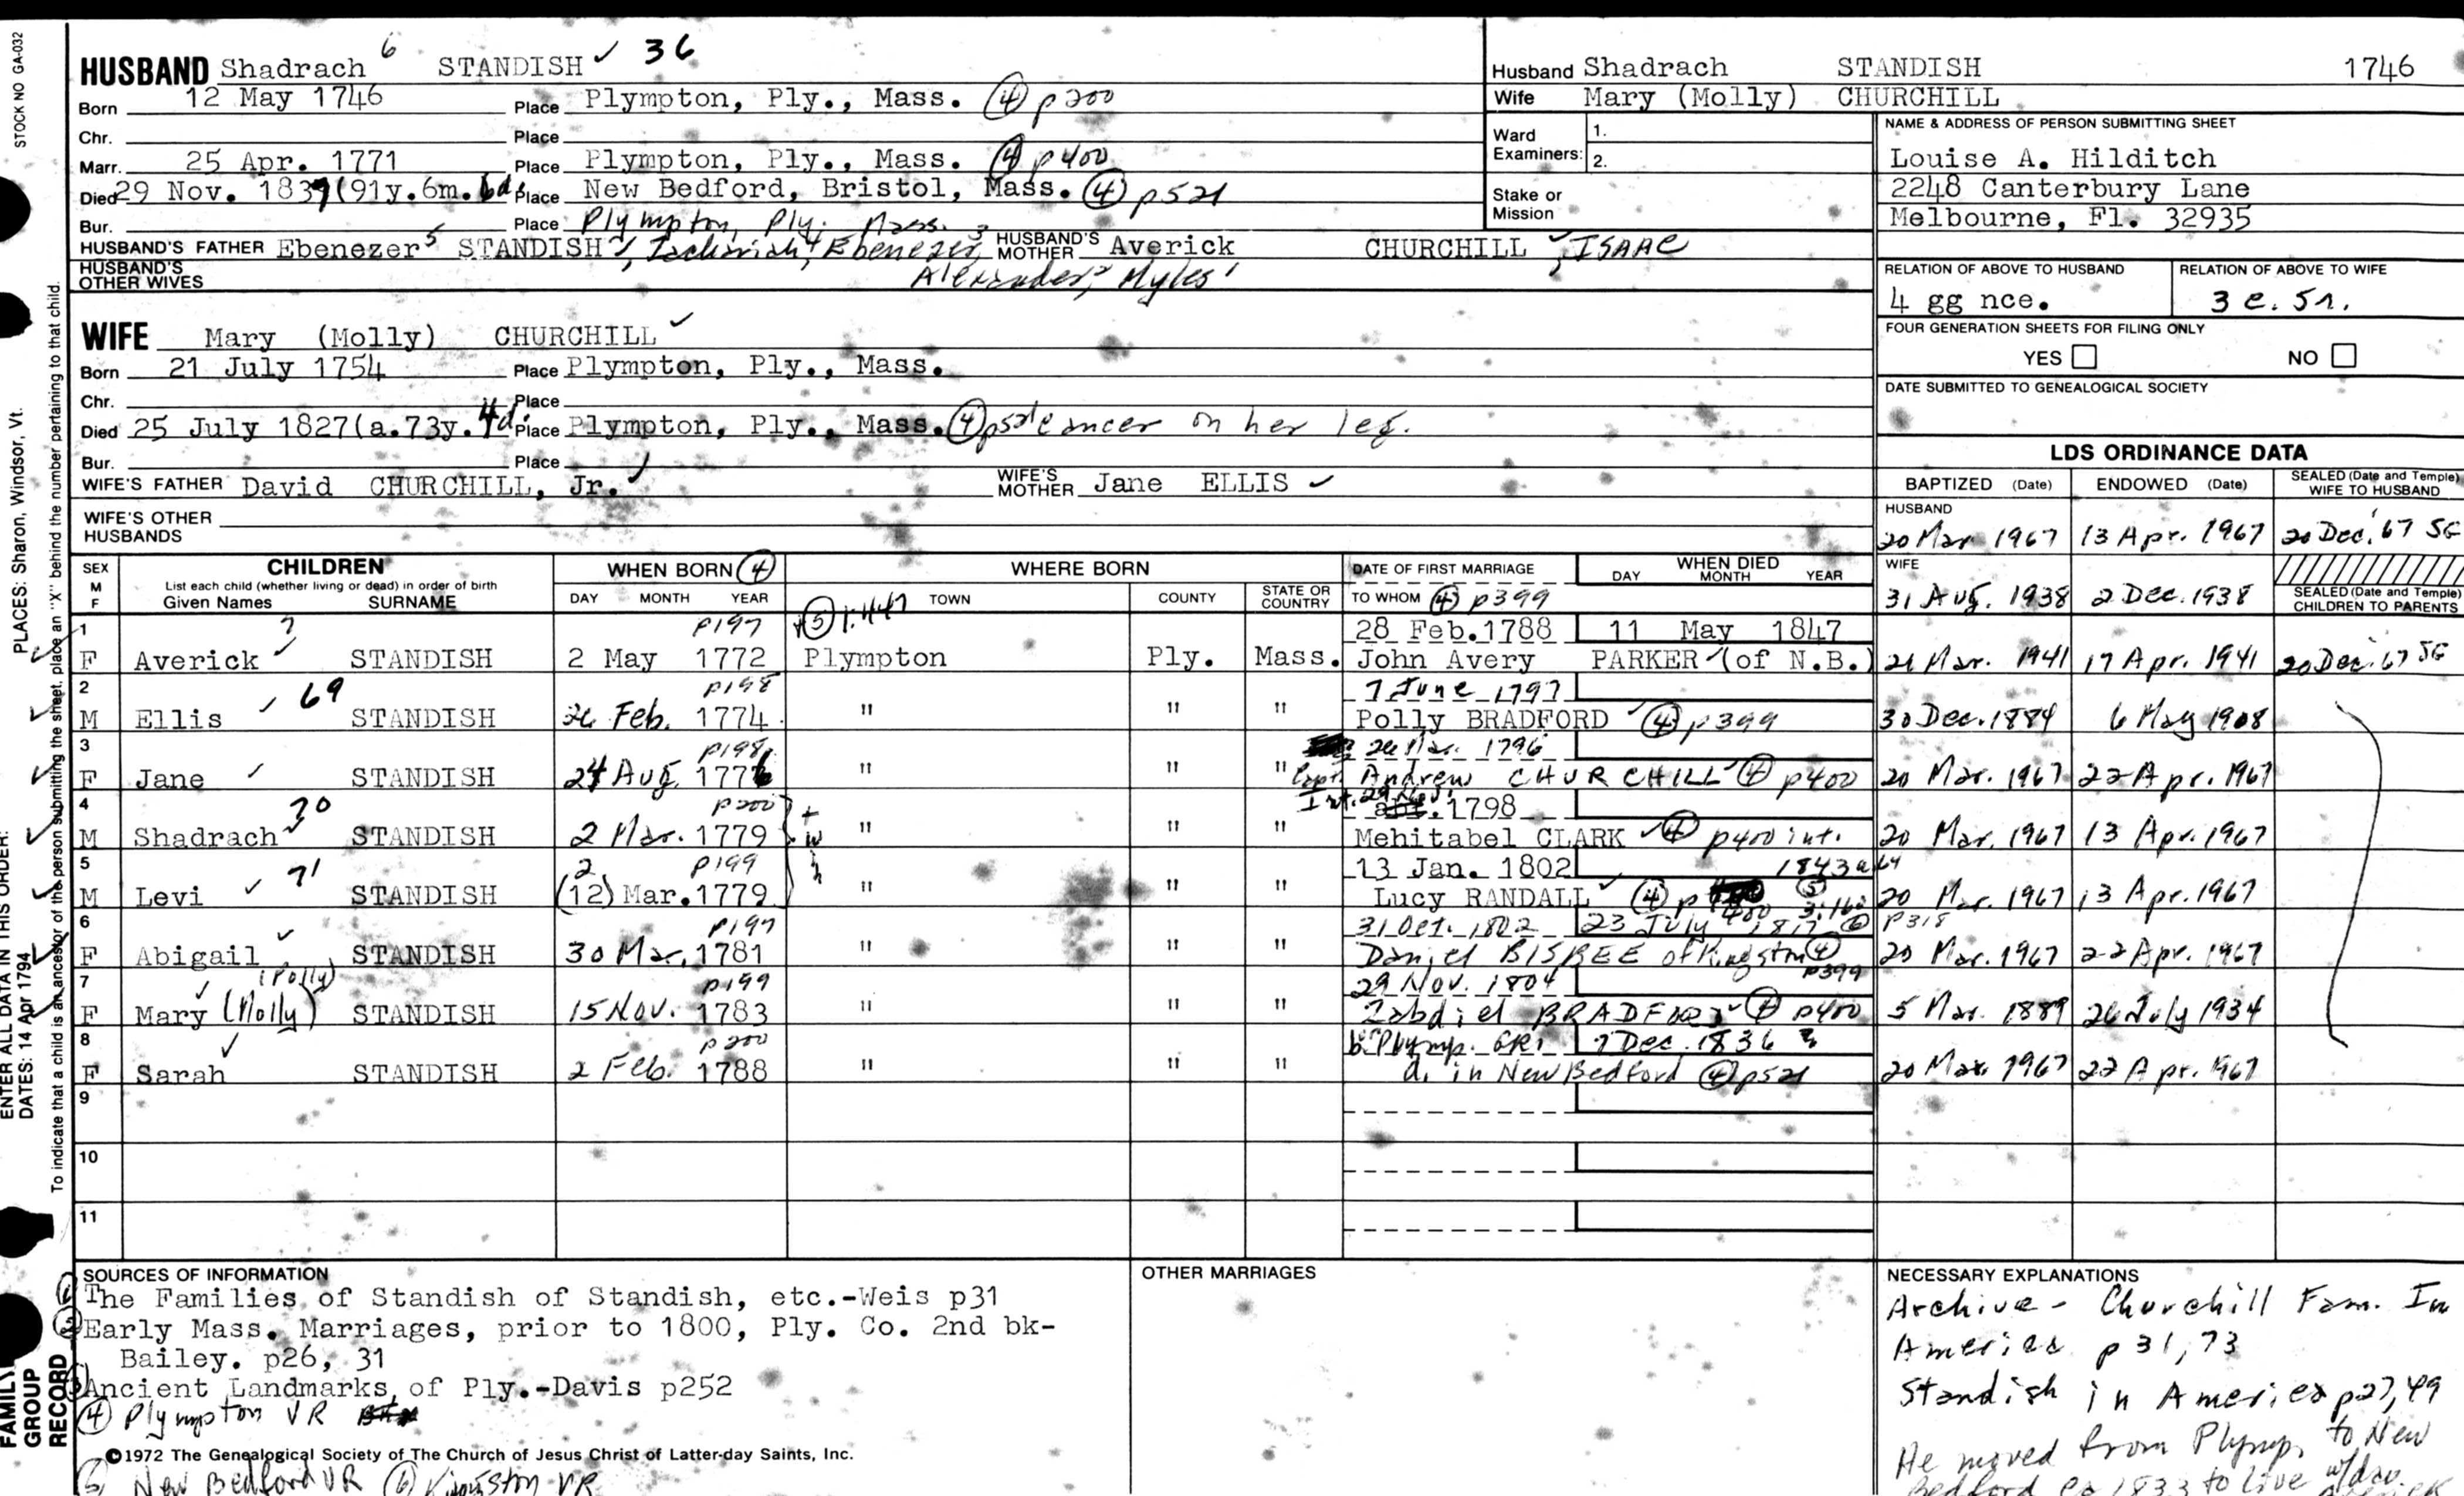 STOCK NO GA-032
HUSBAND Shadrach 6 STANDISH ✓ 36
Born 12 May 1746 Place Plympton, Ply., Mass. (4) p200
Chr. Place
Marr. 25 Apr. 1771 Place Plympton, Ply., Mass. (4) p400
Died 29 Nov. 1837 (91y.6m. Place New Bedford, Bristol, Mass. (4) p521
Bur. Place Plympton, Ply. Mass.
HUSBAND'S FATHER Ebenezer 5 STANDISH, Zachariah 4, Ebenezer 3 HUSBAND'S MOTHER Averick CHURCHILL ✓, ISAAC
HUSBAND'S OTHER WIVES Alexander 2, Myles 1
WIFE Mary (Molly) CHURCHILL ✓
Born 21 July 1754 Place Plympton, Ply., Mass.
Chr. Place
Died 25 July 1827 (a.73y. 4d. Place Plympton, Ply., Mass. (4) cancer on her leg.
Bur. Place
WIFE'S FATHER David CHURCHILL, Jr. ✓ WIFE'S MOTHER Jane ELLIS ✓
WIFE'S OTHER HUSBANDS
Husband Shadrach STANDISH 1746
Wife Mary (Molly) CHURCHILL
Ward Examiners: 1.
2.
Stake or Mission
NAME & ADDRESS OF PERSON SUBMITTING SHEET
Louise A. Hilditch
2248 Canterbury Lane
Melbourne, Fl. 32935
RELATION OF ABOVE TO HUSBAND RELATION OF ABOVE TO WIFE
4 gg nce. 3 c. 5r.
FOUR GENERATION SHEETS FOR FILING ONLY
YES NO
DATE SUBMITTED TO GENEALOGICAL SOCIETY
LDS ORDINANCE DATA
BAPTIZED (Date) ENDOWED (Date) SEALED (Date and Temple) WIFE TO HUSBAND
HUSBAND
20 Mar 1967 13 Apr. 1967 20 Dec. '67 SG
WIFE
31 Aug. 1938 2 Dec. 1938 SEALED (Date and Temple) CHILDREN TO PARENTS
SEX M F CHILDREN List each child (whether living or dead) in order of birth Given Names SURNAME
WHEN BORN (4) DAY MONTH YEAR
WHERE BORN TOWN COUNTY STATE OR COUNTRY
DATE OF FIRST MARRIAGE TO WHOM (4) p399
WHEN DIED DAY MONTH YEAR
1 7 p197 28 Feb. 1788 11 May 1847
F Averick ✓ STANDISH 2 May 1772 Plympton Ply. Mass. John Avery PARKER ✓ (of N.B.) Mar. 1941 17 Apr. 1941 20 Dec. '67 SG
2 69 p198 7 June 1797
M Ellis ✓ STANDISH 26 Feb. 1774 " " " Polly BRADFORD ✓ (4) p399 30 Dec. 1884 6 May 1908
3 p198 Mar. 1796
F Jane ✓ STANDISH 24 Aug. 1776 " " " Capt. Andrew CHURCHILL ✓ (4) p400 20 Mar. 1967 22 Apr. 1967
4 70 p200 Int. 29 1798
M Shadrach ✓ STANDISH 2 Mar. 1779 " " " Mehitabel CLARK ✓ (4) p400 int. 20 Mar. 1967 13 Apr. 1967
5 71 2 p199 13 Jan. 1802 1843 a64
M Levi ✓ STANDISH (12) Mar. 1779 " " " Lucy RANDALL ✓ (4) p400 (5) 20 Mar. 1967 13 Apr. 1967
6 p197 31 Oct. 1802 23 July 1817 (6) p318
F Abigail ✓ STANDISH 30 Mar. 1781 " " " Daniel BISBEE of Kingston (4) p399 20 Mar. 1967 22 Apr. 1967
7 (Polly) p199 29 Nov. 1804
F Mary (Molly) ✓ STANDISH 15 Nov. 1783 " " " Zabdiel BRADFORD ✓ (4) p400 5 Mar. 1889 26 July 1934
8 p200 b. Plymp. 7 Dec. 1836
F Sarah ✓ STANDISH 2 Feb. 1788 " " " d. in New Bedford (4) p521 20 Mar 1967 22 Apr. 1967
9
10
11
SOURCES OF INFORMATION
(1) The Families of Standish of Standish, etc.-Weis p31
(2) Early Mass. Marriages, prior to 1800, Ply. Co. 2nd bk-
Bailey. p26, 31
(3) Ancient Landmarks of Ply.-Davis p252
(4) Plympton VR
©1972 The Genealogical Society of The Church of Jesus Christ of Latter-day Saints, Inc.
(5) New Bedford VR (6) Kingston VR
OTHER MARRIAGES
NECESSARY EXPLANATIONS
Archive - Churchill Fam. In
America p 31, 73
Standish in America p27, 49
He moved from Plymp. to New
Bedford ca 1833 to live w/dau.
PLACES: Sharon, Windsor, Vt.
ENTER ALL DATA IN THIS ORDER:
DATES: 14 Apr 1794
To indicate that a child is an ancestor of the person submitting the sheet, place an "X" behind the number pertaining to that child.
FAMILY GROUP RECORD